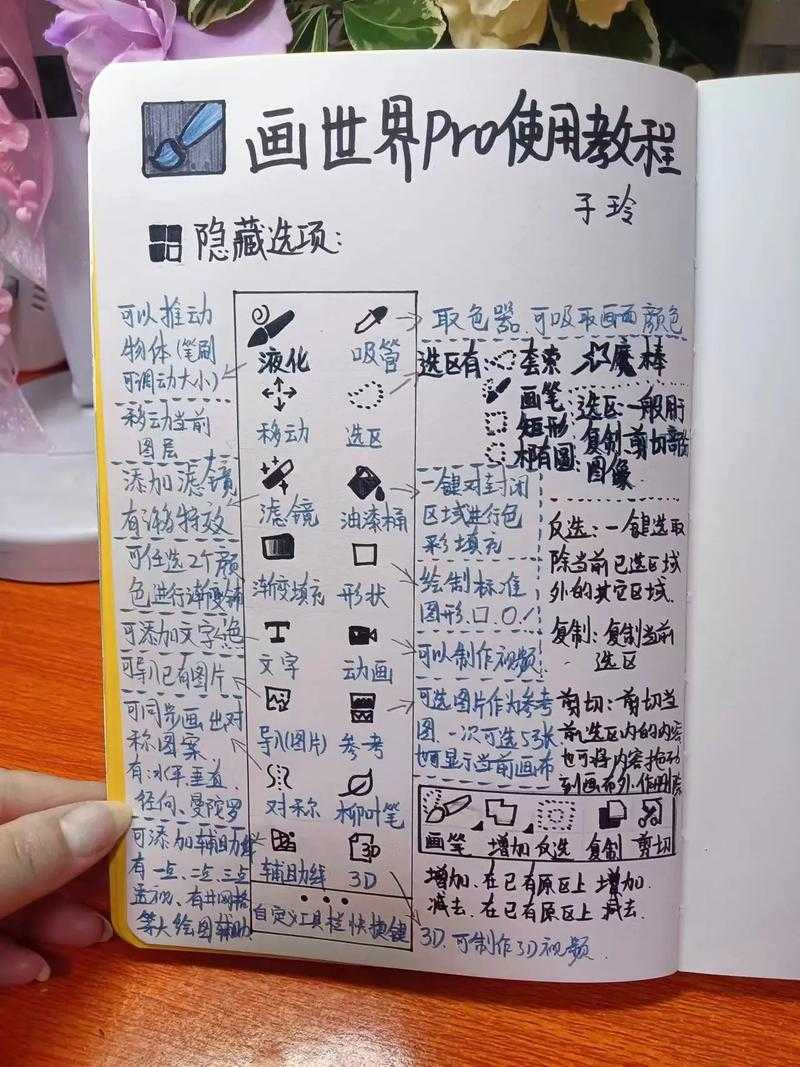 画世界Pro使用教程
子玲
隐藏选项:
可以推动
物体(笔刷
可调动大小)
移动当前
图层
添加滤镜
有许多特效
可任选2个颜
色进行渐变铺
可添加文字
可导入已有图片
可同步画出对
称图案
有:水平、垂直、
径向、曼陀罗
可添加辅助线
有一点、二点、三点
透视、有井网格
等大绘图辅助
液化 吸管
移动 选区
滤镜 油漆桶
渐变填充 形状
T
文字 动画
导入(图片) 参考
对称 柳叶笔
3D
辅助线 3D
自定义工具栏快捷键
取色器.可吸取画面颜色
选区有: 套索 魔棒
画笔:选区一般用于
矩形:复制剪切部分
椭圆:图像
一键对封闭
区域进行色
彩填充
绘制标准
图形.□.○./
可以制作视频
可选图片作为参考
图.一次可选5张
也可显示当前画布
反选:一键选取
除当前已选区域
外的其它区域.
复制:复制当前
选区
剪切:剪切当
前选区内的内容
也可将内容拖动
到画布外.作删除
画笔 增加 反选 复制 剪切
增加.在已有原区上增加.
减去.在已有原区上减去.
3D.可制作3D视频.